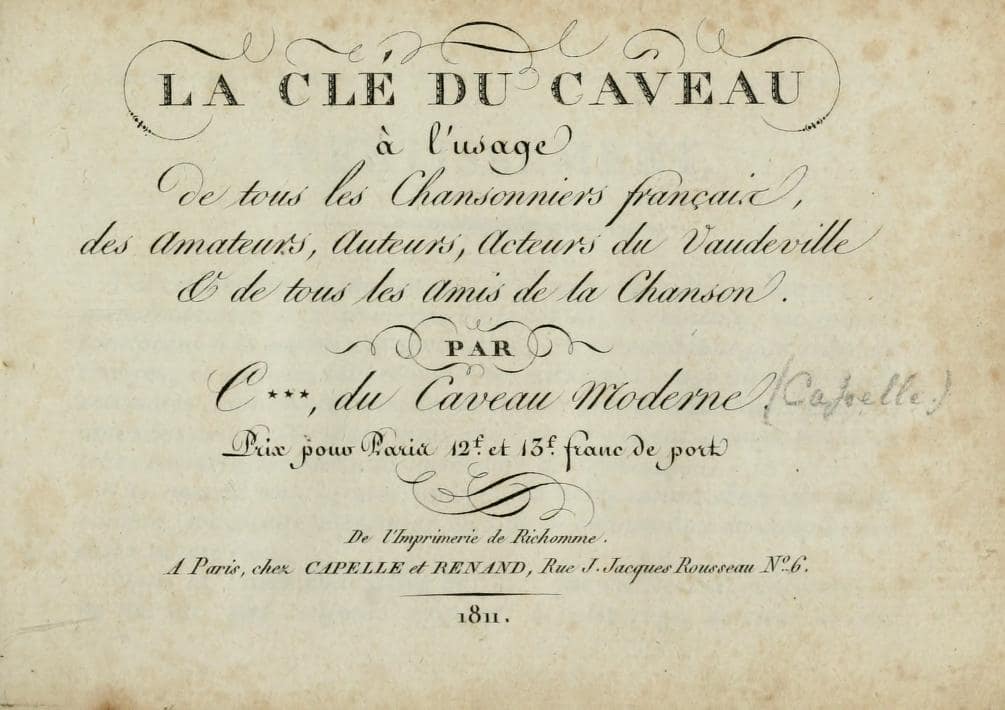 LA CLÉ DU CAVEAU
à l'usage
de tous les Chansonniers français,
des Amateurs, Auteurs, Acteurs du Vaudeville
& de tous les Amis de la Chanson.
PAR
C***, du Caveau Moderne. (Capelle.)
Prix pour Paris 12f. et 13f. franc de port
De l'Imprimerie de Richomme.
A Paris, chez CAPELLE et RENAND, Rue J. Jacques Rousseau No. 6.
1811.